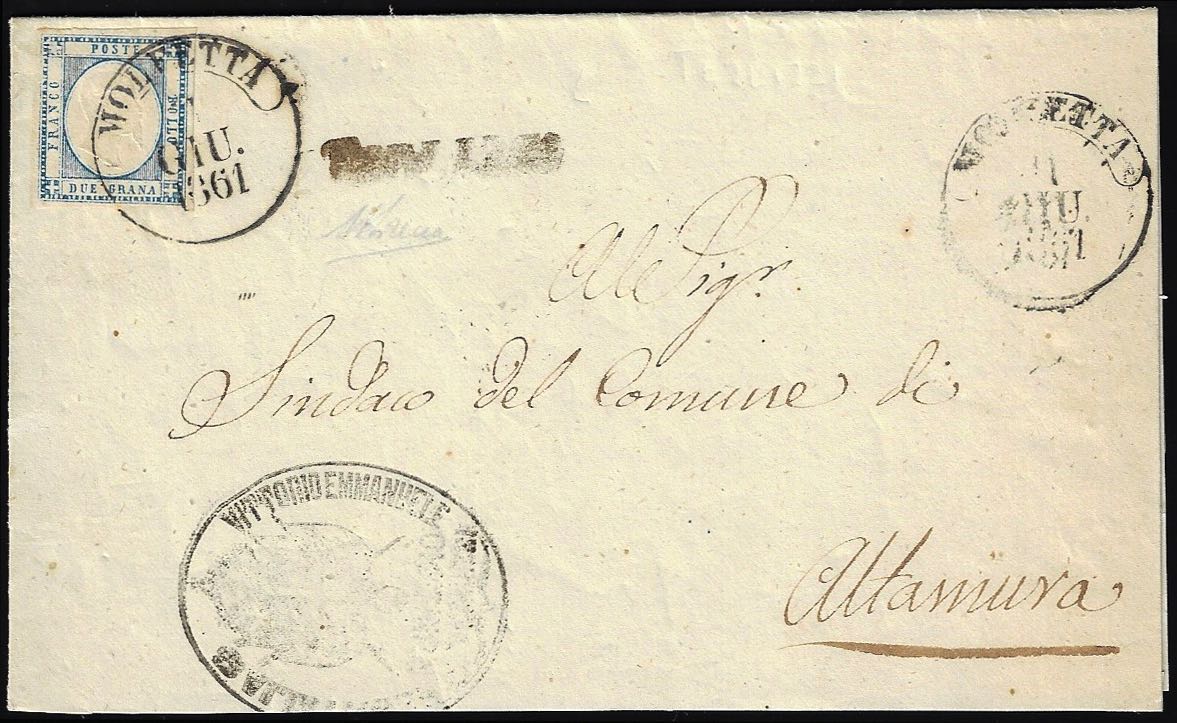 POSTE
FRANCO
BOLLO
DUE GRANA
MOLFETTA
GIU.
1861
MOLFETTA
GIU.
1861
Al Sigr.
Sindaco del Comune di
Altamura
VITTORIO EMMANUELE